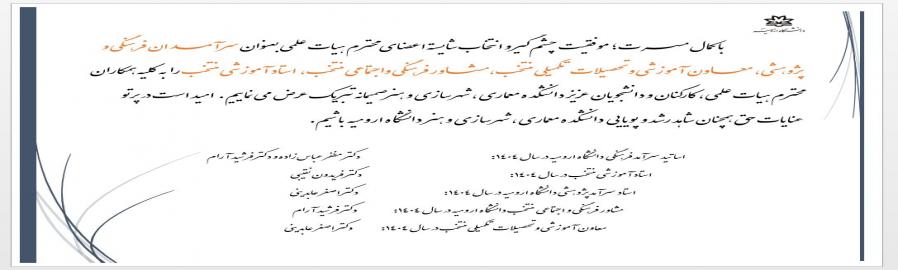 دانشگاه ارومیه
با کمال مسرت؛ موفقیت چشم گیر و انتخاب شایستۀ اعضای محترم هیات علمی بعنوان سرآمدان فرهنگی و
پژوهشی، معاون آموزشی و تحصیلات تکمیلی منتخب، مشاور فرهنگی واجتماعی منتخب، استاد آموزشی منتخب را به کلیه همکاران
محترم هیات علمی، کارکنان و دانشجویان عزیز دانشکده معماری، شهرسازی و هنر صمیمانه تبریک عرض می نماییم. امید است در پرتو
عنایات حق همچنان شاهد رشد و پویایی دانشکده معماری، شهرسازی و هنر دانشگاه ارومیه باشیم.
اساتید سرآمد فرهنگی دانشگاه ارومیه در سال ۱۴۰۴: دکتر مظفر عباس زاده و دکتر فرشید آرام
استاد آموزشی منتخب در سال ۱۴۰۴: دکتر فریدون نقیبی
استاد سرآمد پژوهشی دانشگاه ارومیه در سال ۱۴۰۴: دکتر اصغر عابدینی
مشاور فرهنگی و اجتماعی منتخب دانشگاه ارومیه در سال ۱۴۰۴: دکتر فرشید آرام
معاون آموزشی و تحصیلات تکمیلی منتخب در سال ۱۴۰۴: دکتر اصغر عابدینی